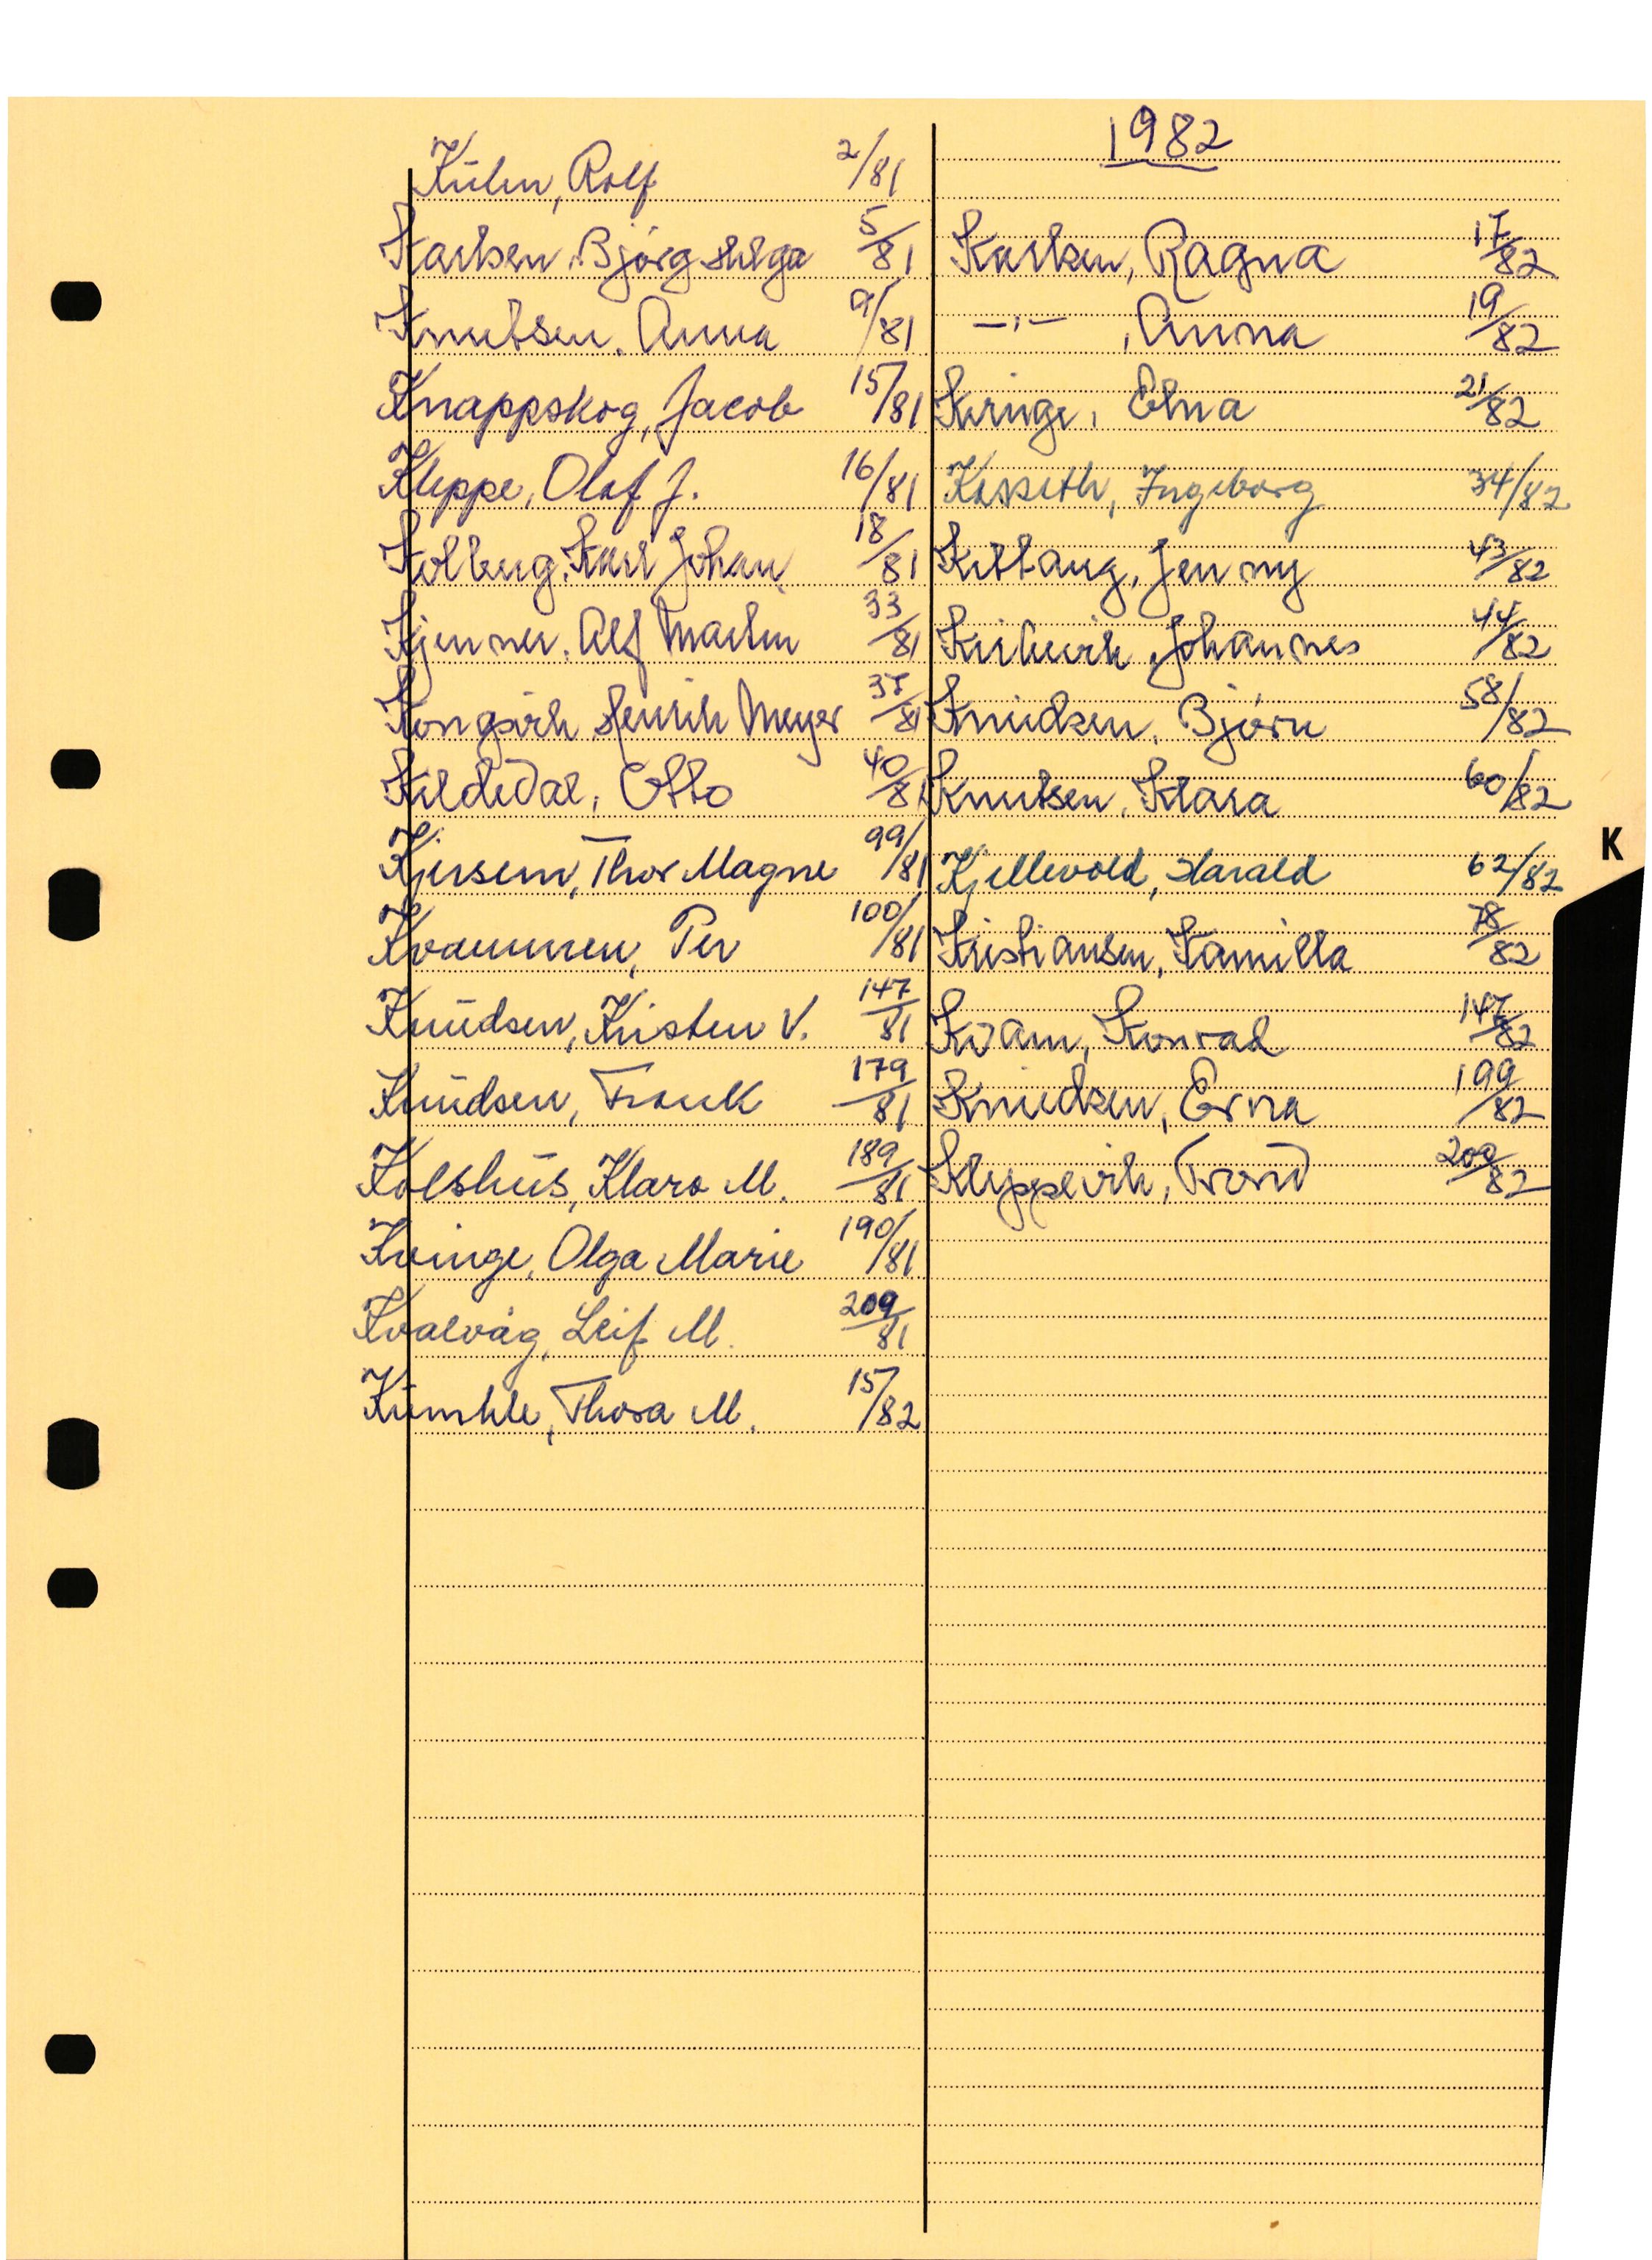 Kühn, Rolf 2/81
Karlsen, Bjørg Helga 5/81
Knutsen, Anna 9/81
Knappskog, Jacob 15/81
Kleppe, Olaf J. 16/81
Kolberg, Karl Johan 18/81
Kjenner, Alf Martin 33/81
Kongsvik, Henrik Meyer 37/81
Kildedal, Otto 40/81
Kjersem, Thor Magne 99/81
Kvammen, Per 100/81
Knudsen, Kristen V. 147/81
Knudsen, Frank 179/81
Kolshus, Klara M. 189/81
Kvinge, Olga Marie 190/81
Kvalvåg, Leif M. 209/81
Kümhle, Thora M. 15/82
1982
Karlsen, Ragna 17/82
—"— , Anna 19/82
Kvinge, Elna 21/82
Ingeborg 34/82
Kittang, Jenny 43/82
Johannes 44/82
Knudsen, Bjørn 58/82
Knutsen, Klara 60/82
Kjellevold, Harald 62/82
Kristiansen, Kamilla 78/82
Kvam, Konrad 147/82
Knudsen, Erna 199/82
Kleppevik, Trond 200/82
K